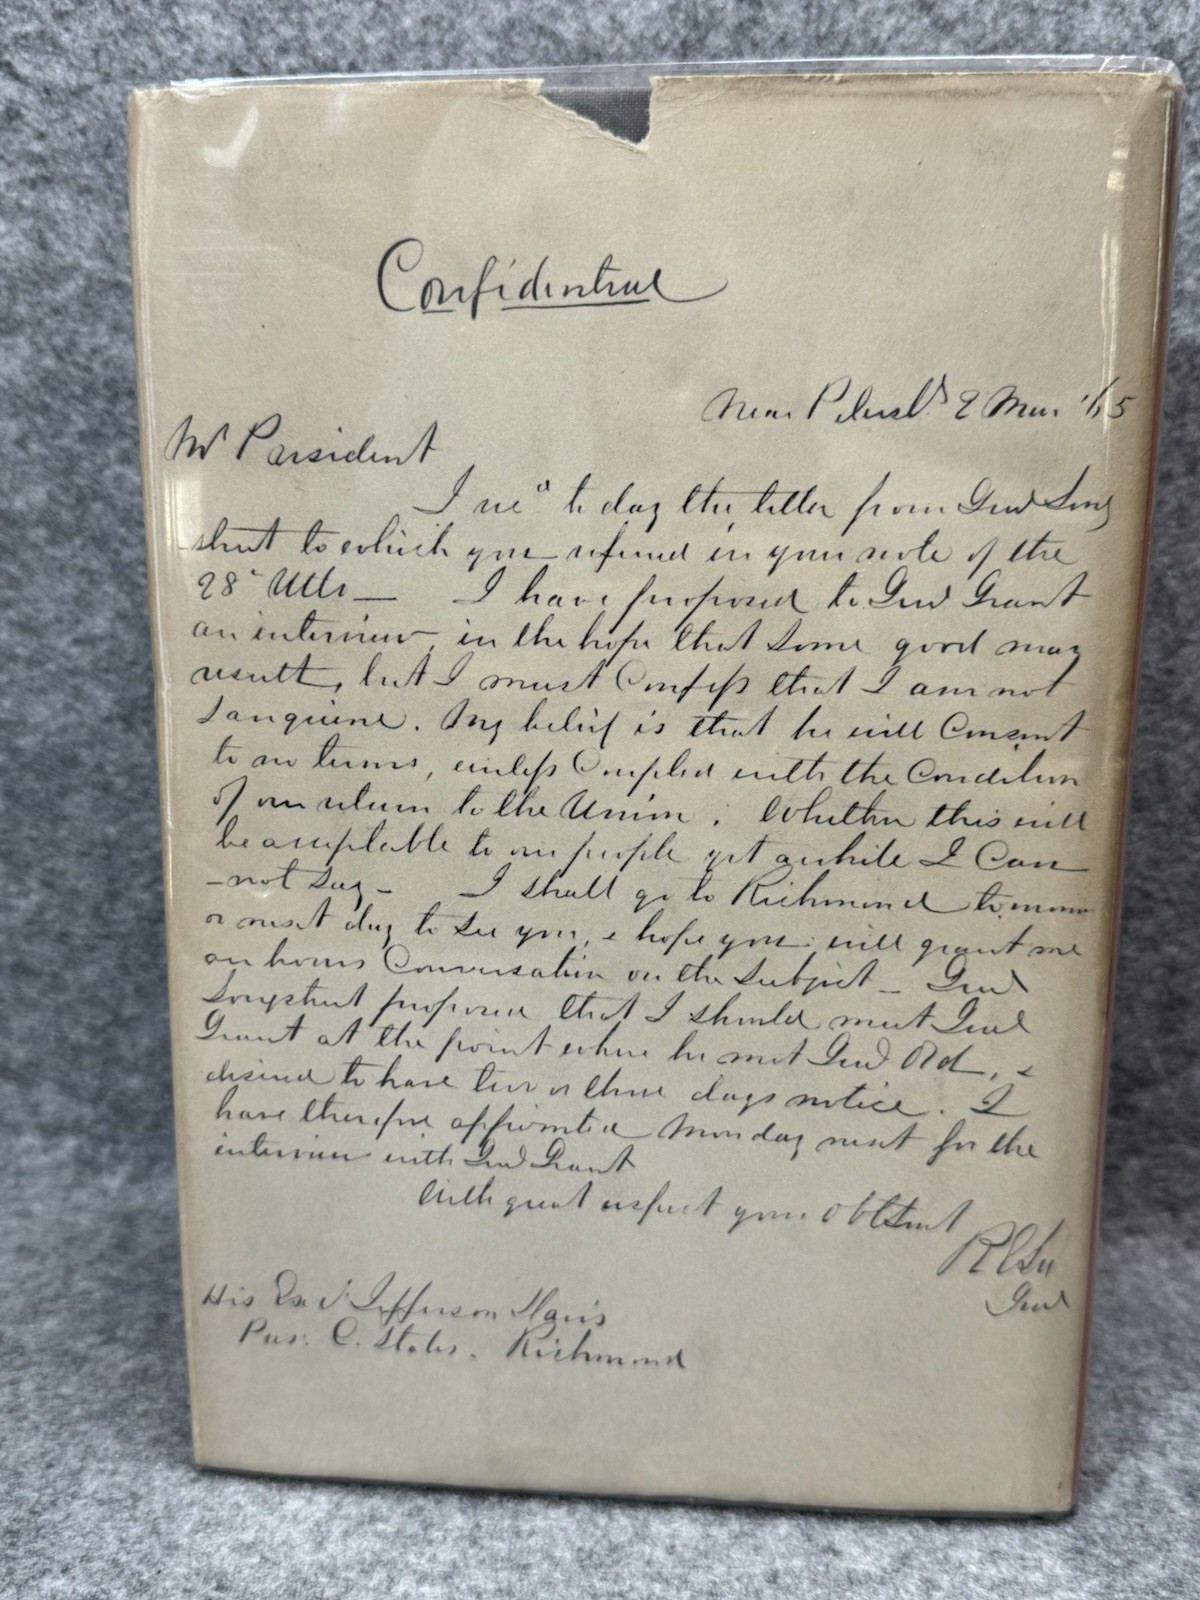 Confidential
Near Petersbg 2 Mar '65
Mr President
I recd to day the letter from Genl Long
street to which you refered in your note of the
28th Ulto — I have proposed to Genl Grant
an interview, in the hope that some good may
result, but I must confess that I am not
sanguine. My belief is that he will consent
to no terms, unless coupled with the condition
of our return to the Union. Whether this will
be acceptable to our people yet awhile I can
-not say - I shall go to Richmond tomorrow
or next day to see you, & hope you will grant me
an hours conversation on the subject — Genl
Longstreet proposed that I should meet Genl
Grant at the point where he met Genl Ord, &
desired to have two or three days notice. I
have therefore appointed Monday next for the
interview with Genl Grant
With great respect your obt Servt
R E Lee
Genl
His Excy Jefferson Davis
Pres: C. States. Richmond